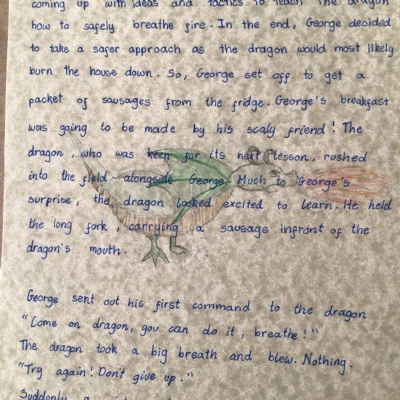 coming up with ideas and tactics to teach the dragon
how to safely breathe fire. In the end, George decided
to take a safer approach as the dragon would most likely
burn the house down. So, George set off to get a
packet of sausages from the fridge. George's breakfast
was going to be made by his scaly friend! The
dragon, who was keen for its next lesson, rushed
into the field alongside George. Much to George's
surprise, the dragon looked excited to learn. He held
the long fork, carrying a sausage infront of the
dragon's mouth.
George sent out his first command to the dragon
"Come on dragon, you can do it, breathe!"
The dragon took a big breath and blew. Nothing.
"Try again! Don't give up."
Suddenly, a